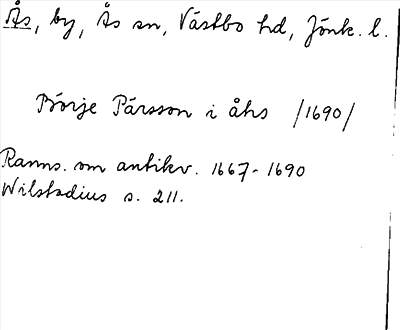 Ås, by, Ås sn, Västbo hd, Jönk. l.
Börje Pärsson i åhs /1690/
Ranns. om antikv. 1667-1690
Wilstadius s. 211.